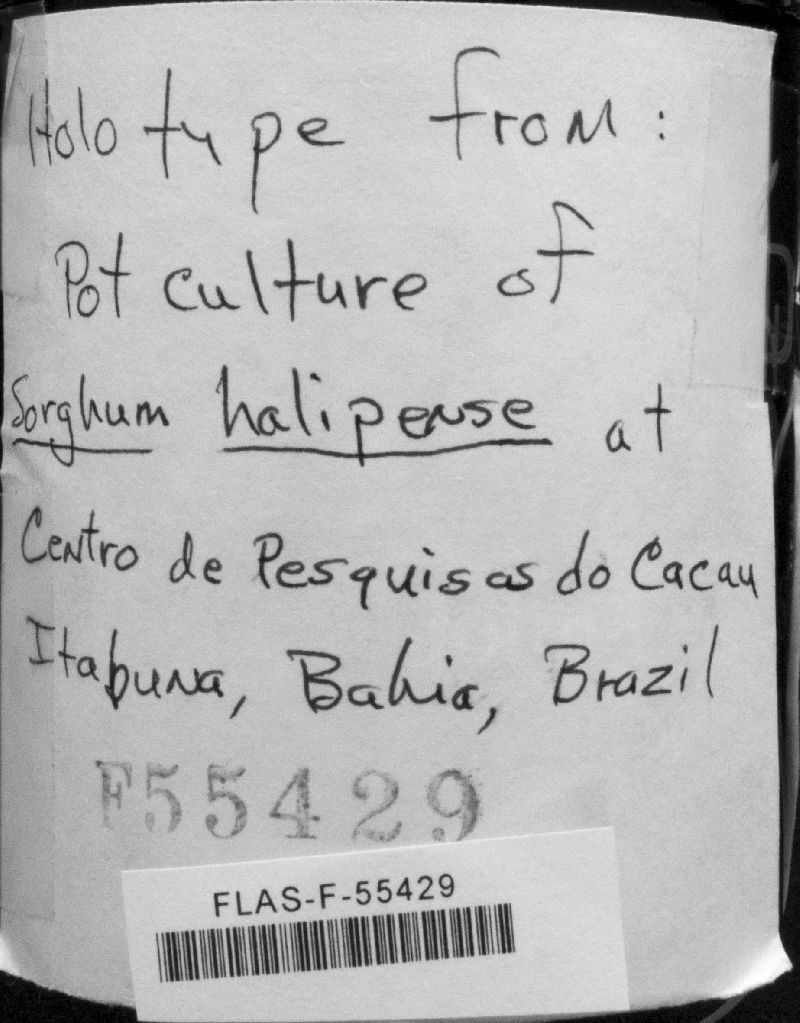 Holotype from:
Pot culture of
Sorghum halipense at
Centro de Pesquisas do Cacau
Itabuna, Bahia, Brazil
F55429
FLAS-F-55429